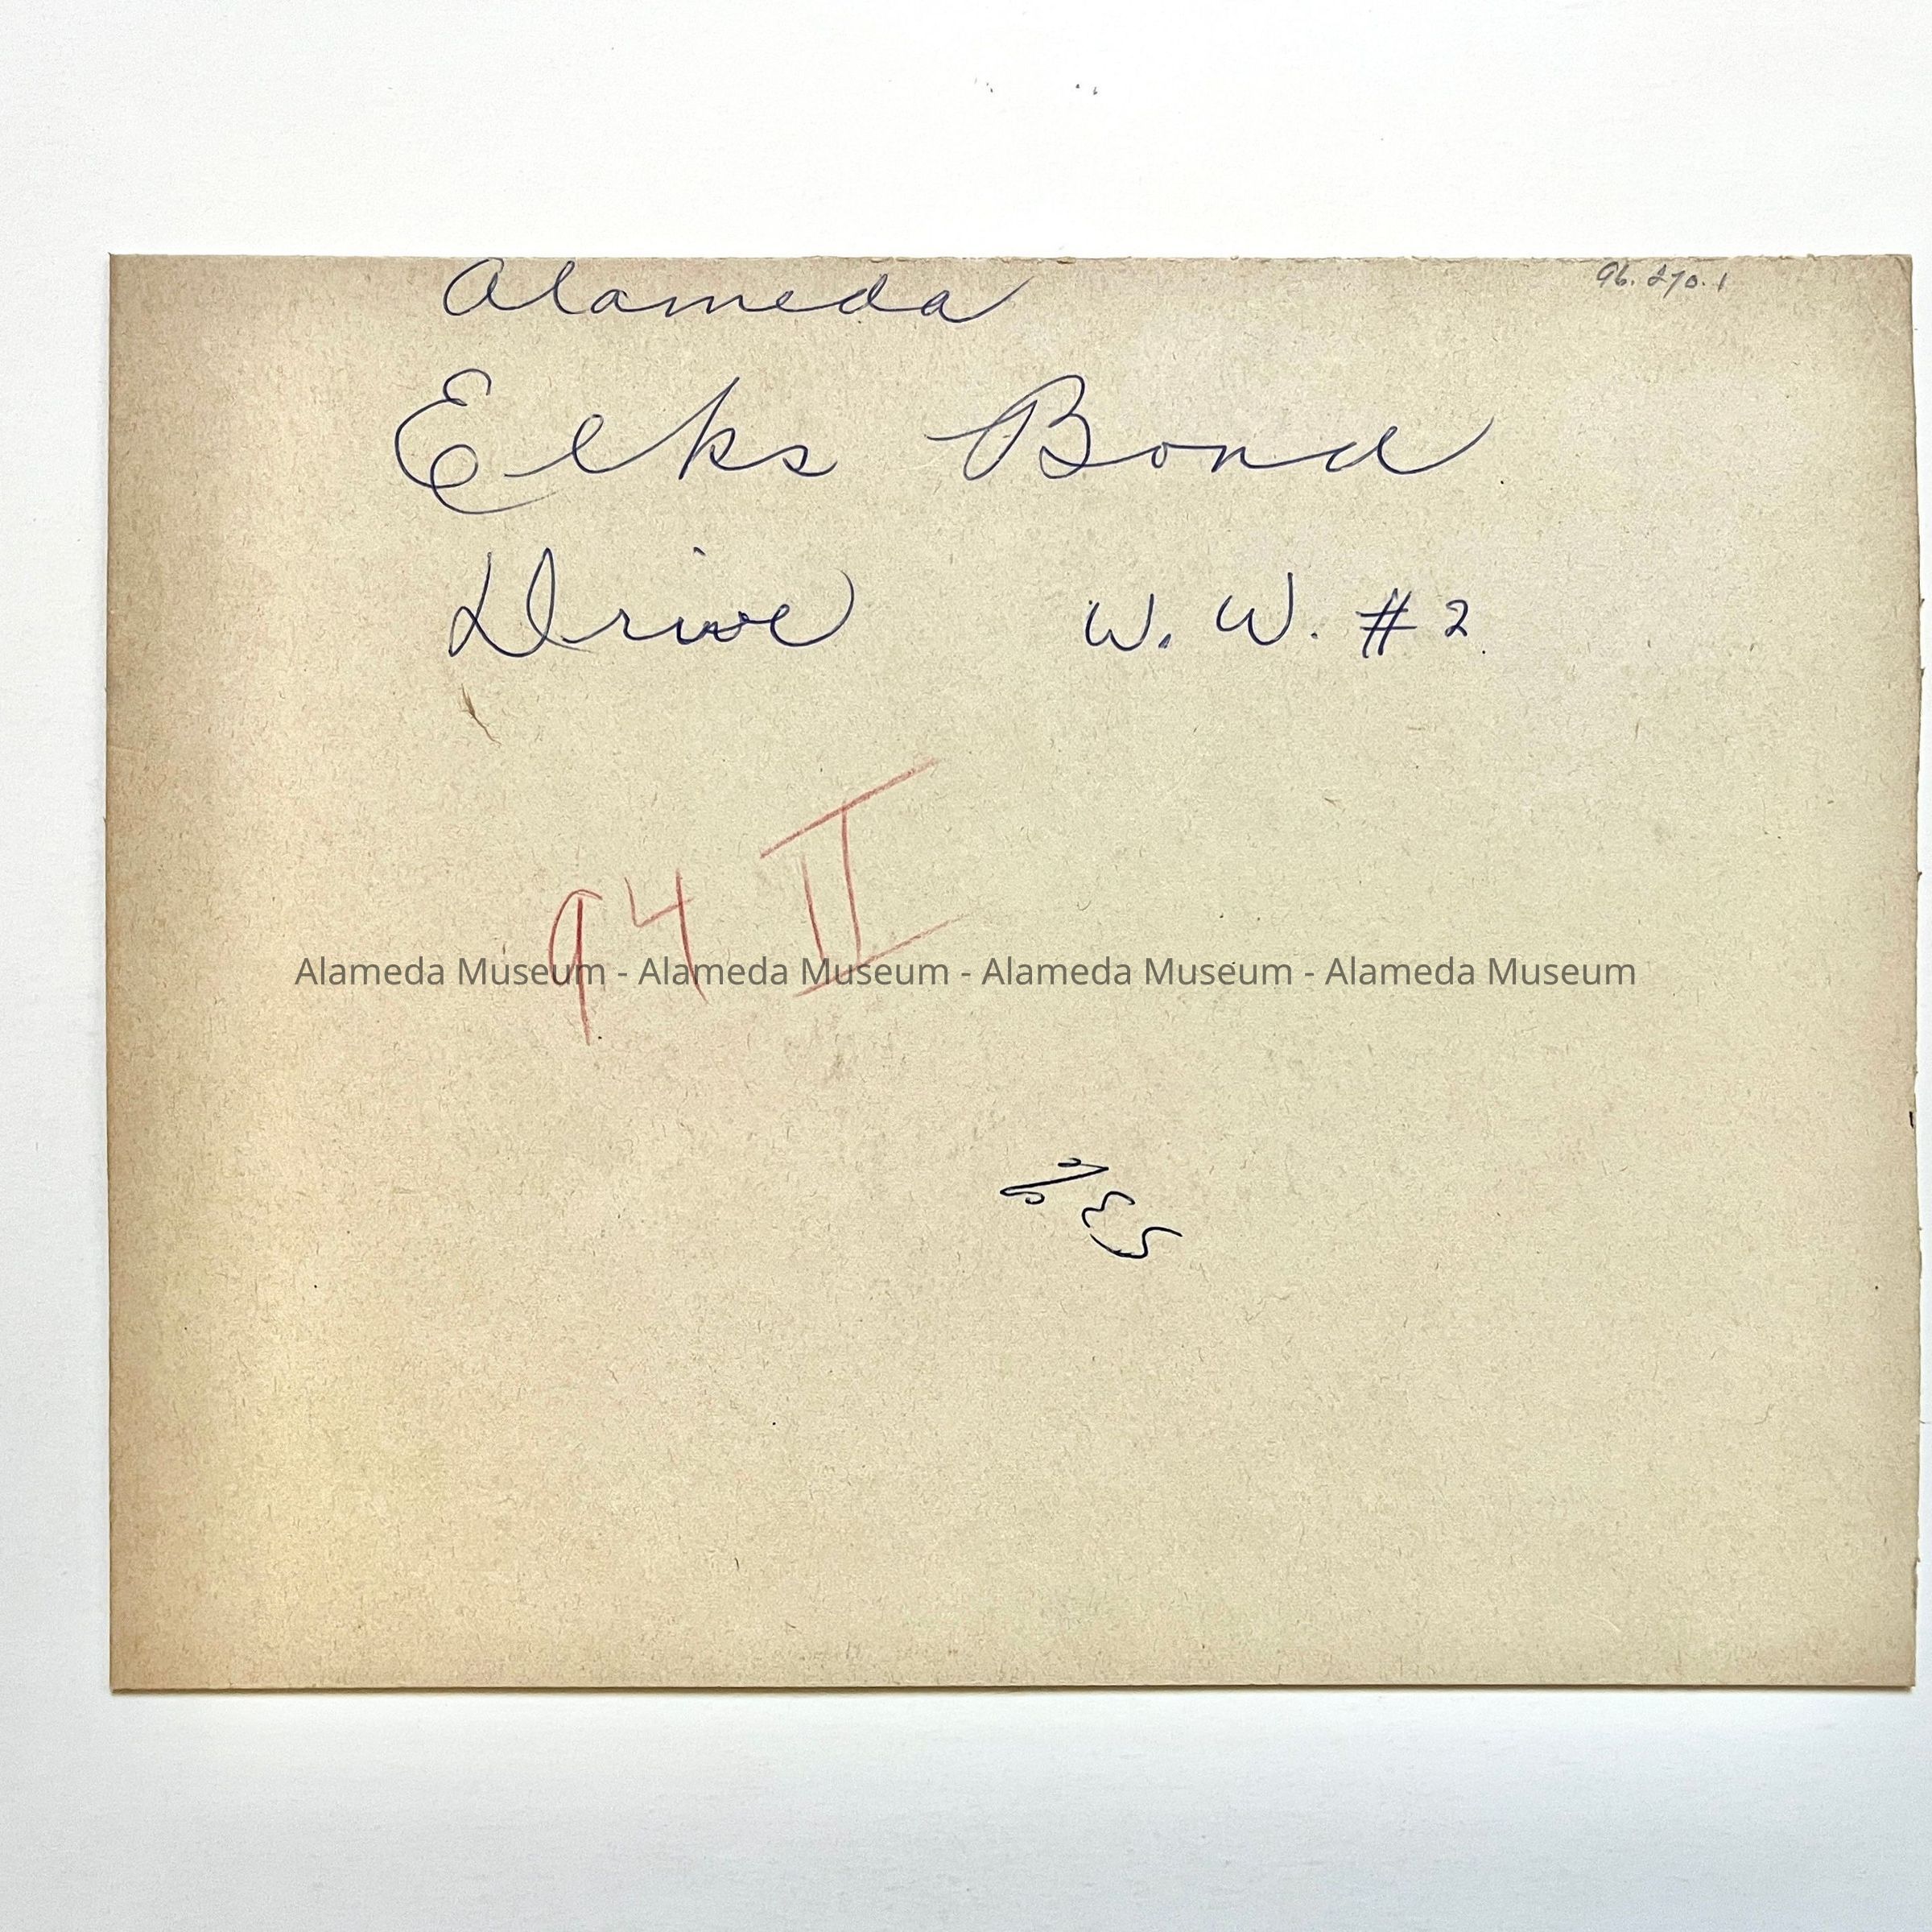 96.270.1
Alameda
Elks Bond
Drive W. W. #2
94 II
Alameda Museum - Alameda Museum - Alameda Museum - Alameda Museum